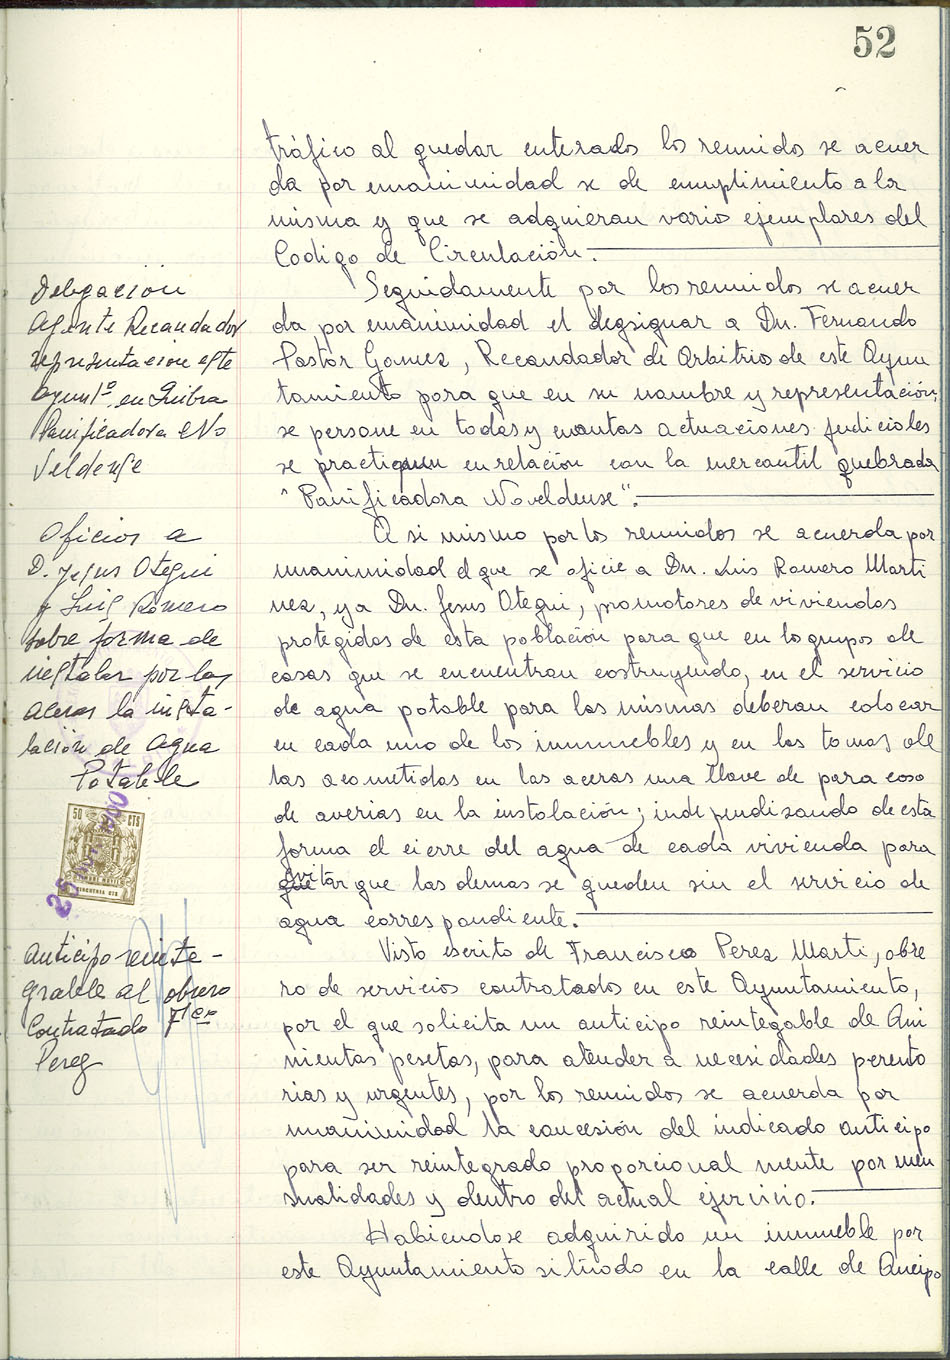 52
tráfico al quedar enterados los reunidos se acuer
da por unanimidad se de cumplimiento a la
misma y que se adquieran varios ejemplares del
Codigo de Circulación.
Delegación
Agente Recaudador
representación este
Ayuntº. en Quibra
Panificadora No
veldense
Seguidamente por los reunidos se acuer
da por unanimidad el designar a Dn. Fernando
Pastor Gomez, Recaudador de Arbitrios de este Ayun
tamiento para que en su nombre y representación,
se persone en todas y cuantas actuaciones judiciales
se practiquen en relación con la mercantil quebrada
"Panificadora Noveldense".
Oficios a
D. Jesus Otegui
y Luis Romero
sobre forma de
instalar por las
aceras la insta-
lación de Agua
Potable
A si mismo por los reunidos se acuerda por
unanimidad el que se oficie a Dn. Luis Romero Marti
nez, y a Dn. Jesus Otegui, promotores de viviendas
protegidas de esta población para que en los grupos de
casas que se encuentran costruyendo, en el servicio
de agua potable para las mismas deberan colocar
en cada uno de los inmuebles y en las tomas de
las acometidas en las aceras una llave de para caso
de averias en la instalación; indipendizando de esta
forma el cierre del agua de cada vivienda para
evitar que las demas se queden sin el servicio de
agua correspondiente.
50 CTS
CINCUENTA CTS
Anticipo reinte-
grable al obrero
Contratado Fºer
Perez
Visto escrito de Francisco Perez Marti, obre
ro de servicios contratados en este Ayuntamiento,
por el que solicita un anticipo reintegable de Qui
nientas pesetas, para atender a necesidades perento
rias y urgentes, por los reunidos se acuerda por
unanimidad la concesión del indicado anticipo
para ser reintegrado proporcionalmente por men
sualidades y dentro del actual ejercicio.
Habiendose adquirido un inmueble por
este Ayuntamiento situado en la calle de Queipo